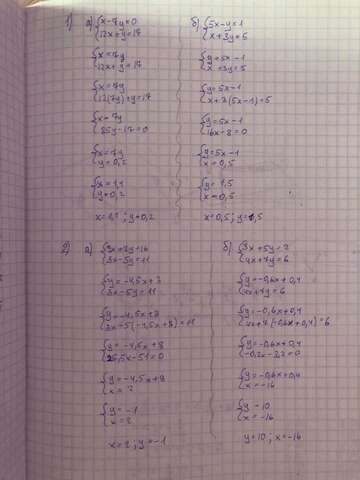 1) а) {x-7y=0
{12x+y=17
{x=7y
{12x+y=17
{x=7y
{12(7y)+y=17
{x=7y
{85y-17=0
{x=7y
{y=0,2
{x=1,4
{y=0,2
x=1,4; y=0,2
б) {5x-y=1
{x+3y=5
{y=5x-1
{x+3y=5
{y=5x-1
{x+3(5x-1)=5
{y=5x-1
{16x-8=0
{y=5x-1
{x=0,5
{y=1,5
{x=0,5
x=0,5; y=1,5
2) а)
{3x-5y=11
{3x-5y=11
{y=-4,5x+8
{3x-5(-4,5x+8)=11
{y=-4,5x+8
{25,5x-51=0
{y=-4,5x+8
{x=2
{y=-1
{x=2
x=2; y=-1
б) {3x+5y=2
{4x+7y=6
{y=-0,6x+0,4
{4x+7y=6
{y=-0,6x+0,4
{4x+7(-0,6x+0,4)=6
{y=-0,6x+0,4
{-0,2x-3,2=0
{y=-0,6x+0,4
{x=-16
{y=10
{x=-16
y=10; x=-16